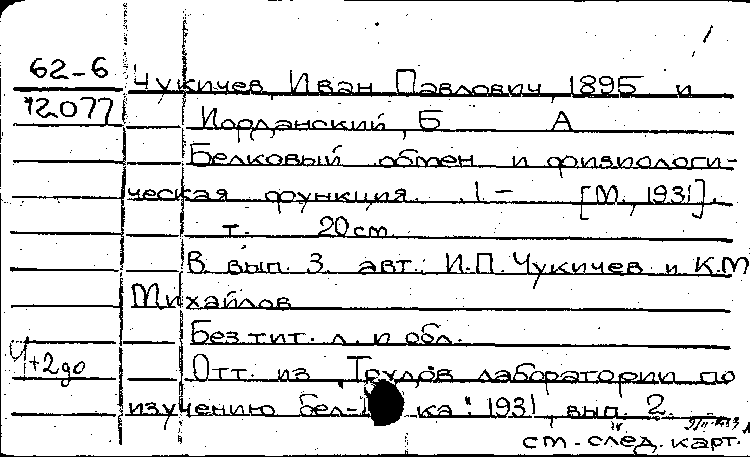 62-6 Чукичев, Иван Павлович, 1895 и
12077 Иорданский, Б А
Белковый обмен и физиологи-
ческая функция. 1 - [М., 1931].
т. 20 см.
В вып. 3. авт.: И.П. Чукичев и К.М
Михайлов
Без тит. л. и обл.
Ч+2до Отт. из "Трудов лаборатории по
изучению бел-ка": 1931, вып. 2.
см. след. карт.